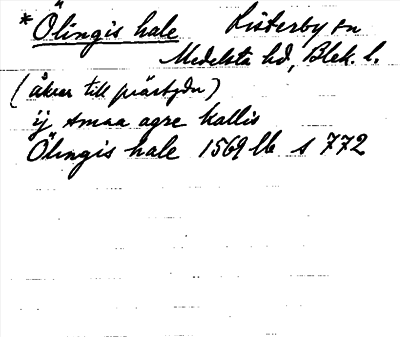 *Ölingis hale Listerby sn
Medelsta hd, Blek. l.
(åker till prästgdn)
ij smaa agre kallis
Ölingis hale 1569 lb s 772